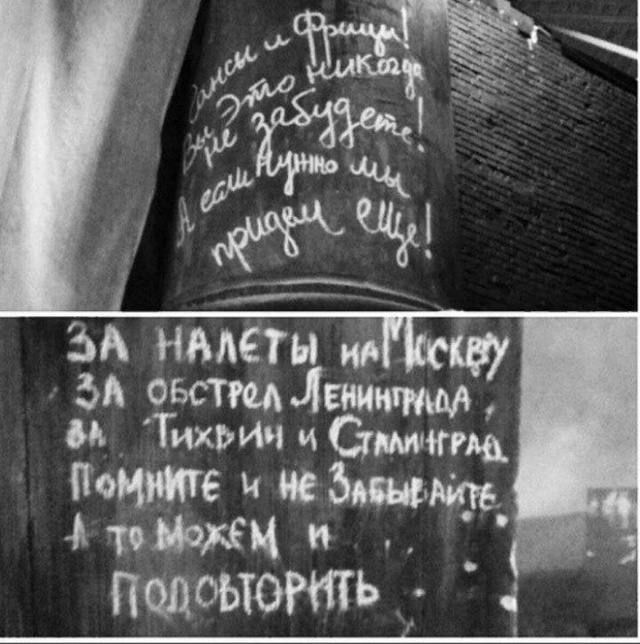 Гансы и Фрицы!
Вы это никогда
не забудете!
А если нужно мы
придем еще!
ЗА НАЛЕТЫ НА МОСКВУ
ЗА ОБСТРЕЛ ЛЕНИНГРАДА,
ЗА ТИХВИН И СТАЛИНГРАД
ПОМНИТЕ И НЕ ЗАБЫВАЙТЕ
А ТО МОЖЕМ И
ПОВТОРИТЬ